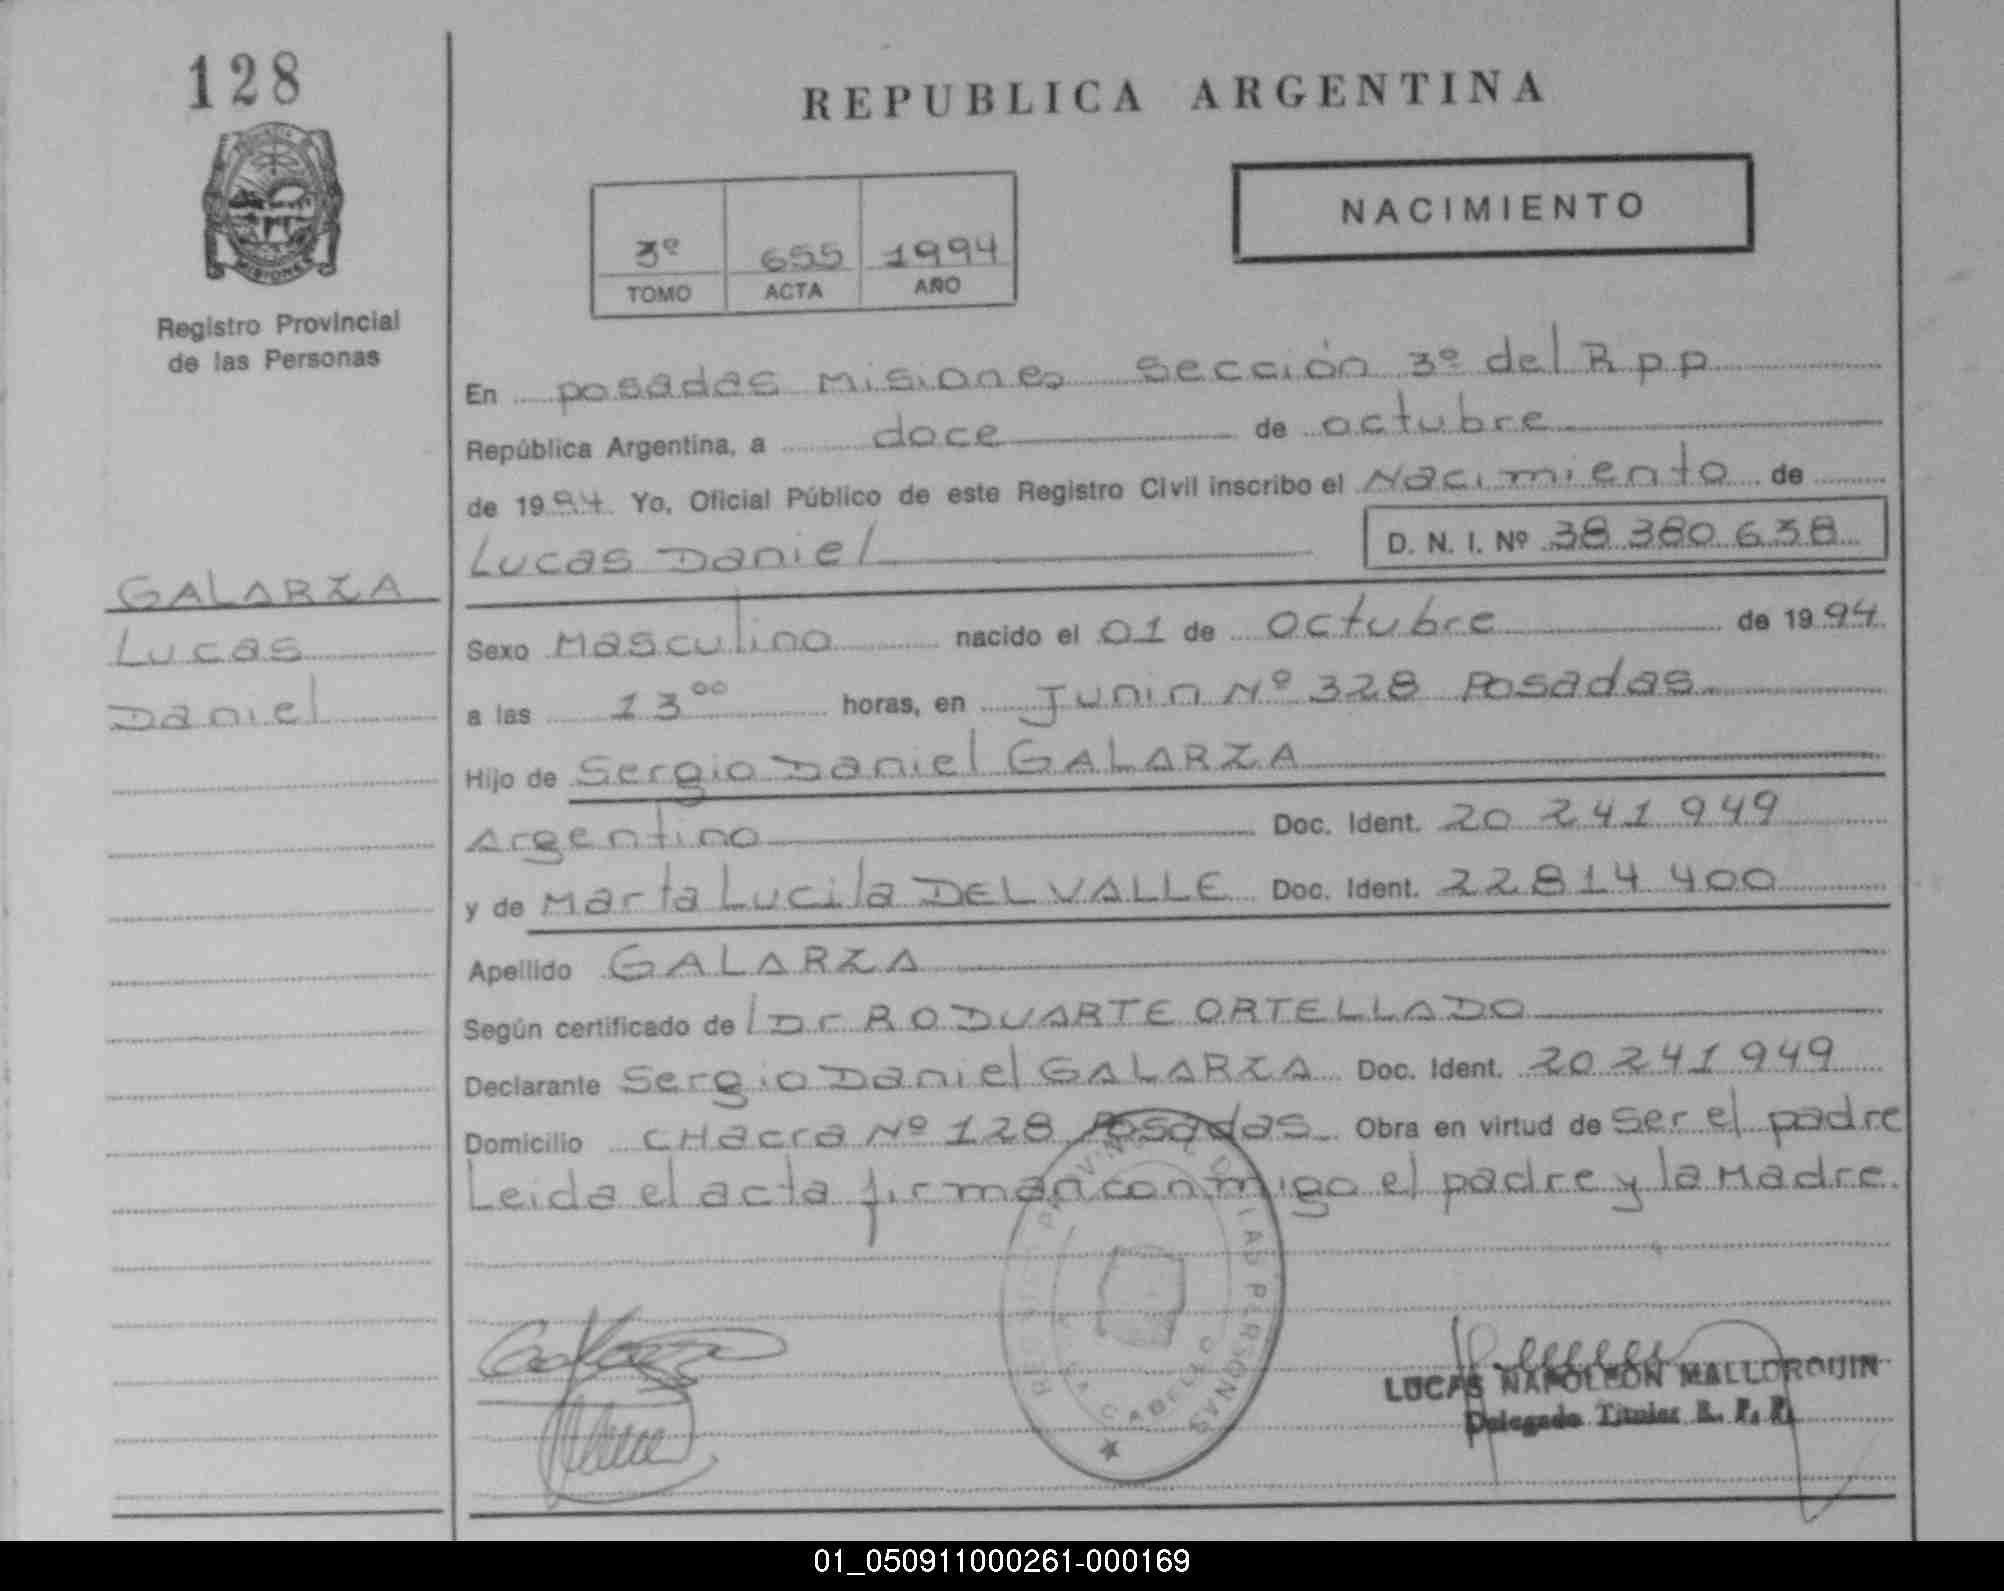 128
MISIONES
Registro Provincial
de las Personas
GALARZA
Lucas
Daniel
REPUBLICA ARGENTINA
NACIMIENTO
3º 655 1994
TOMO ACTA AÑO
En posadas Misiones sección 3º del R p p
República Argentina, a doce de octubre
de 1994 Yo, Oficial Público de este Registro Civil inscribo el Nacimiento de
Lucas Daniel D. N. I. Nº 38 380 638
Sexo Masculino nacido el 01 de octubre de 1994
a las 13 00 horas, en Junin Nº 328 Posadas
Hijo de Sergio Daniel GALARZA
Argentino Doc. Ident. 20 241 949
y de Marta Lucila DEL VALLE Doc. Ident. 22814 400
Apellido GALARZA
Según certificado de l Dr R O DUARTE ORTELLADO
Declarante Sergio Daniel GALARZA Doc. Ident. 20 241 949
Domicilio CHacra Nº 128 Posadas Obra en virtud de ser el padre
Leida el acta firman conmigo el padre y la Madre.
LAS PERSONAS
LUCAS NAPOLEON MALLORQUIN
Delegado Titular R. P. P.
01_050911000261-000169